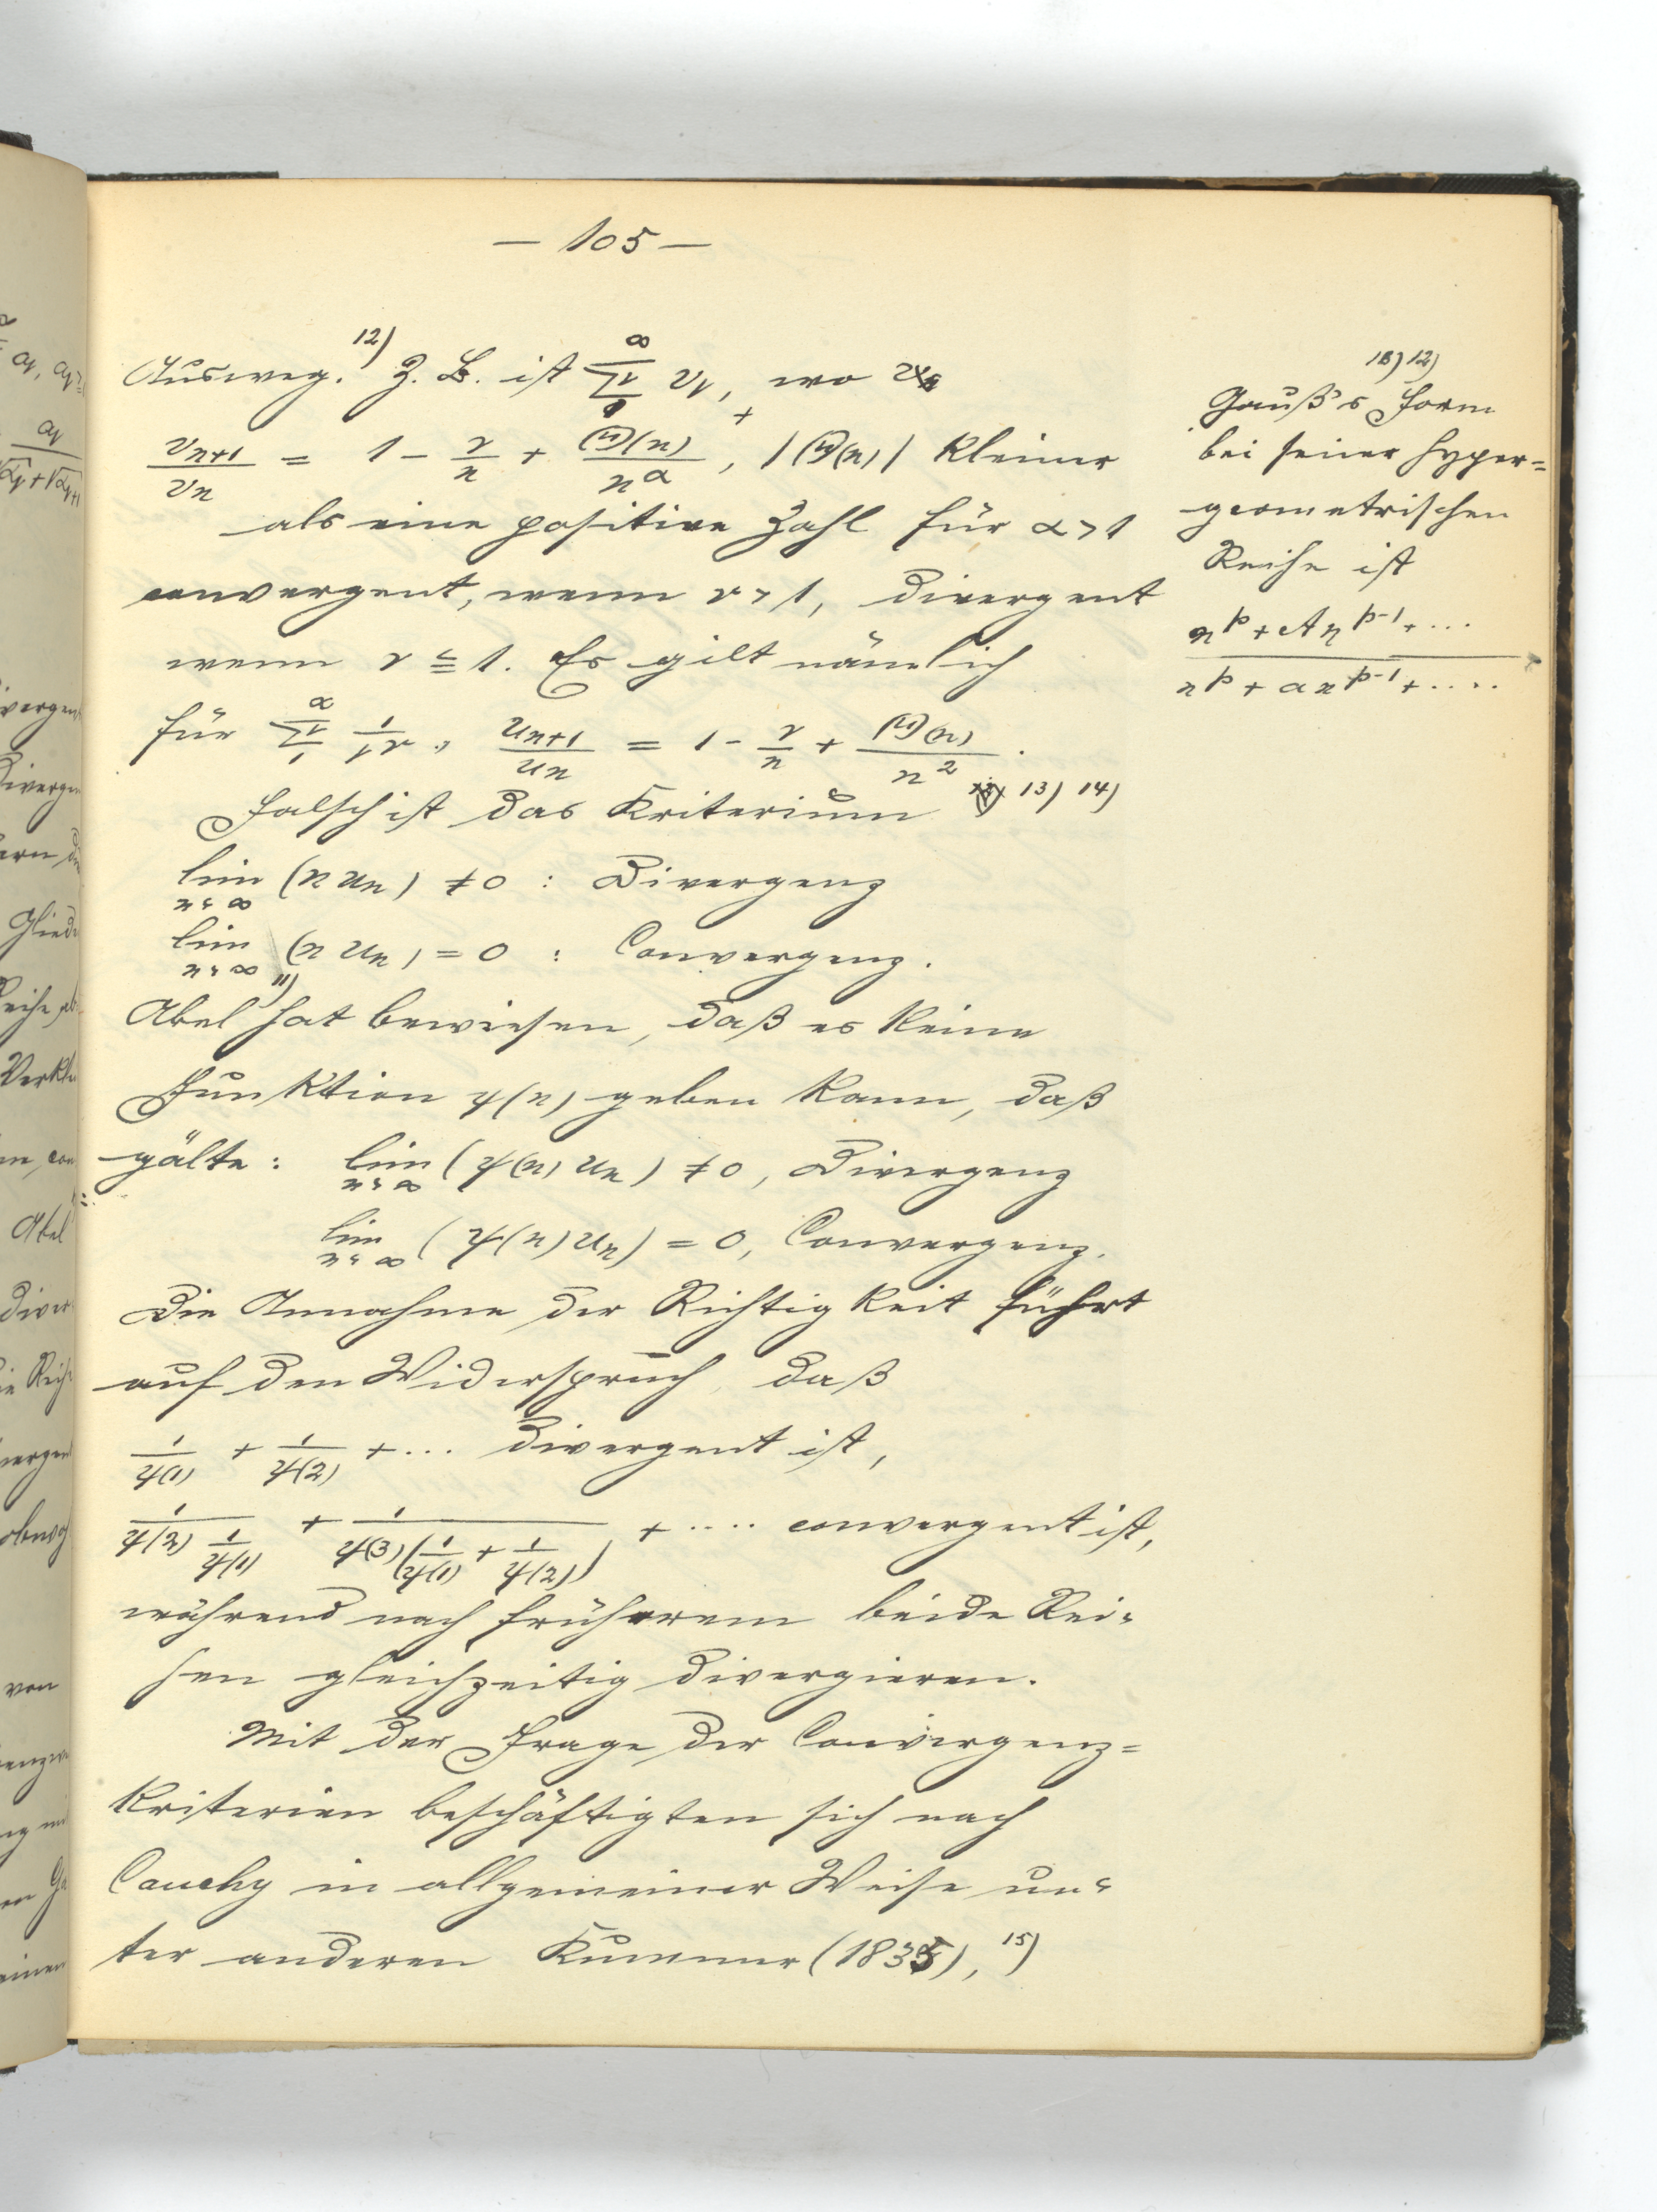 — 105 —
Ausweg.¹²⁾ Z. B. ist ∑₁^∞ vᵥ, wo
vₙ₊₁/vₙ = 1 - r/n + Θ(n)/n^α, |Θ(n)| kleiner
als eine positive Zahl für α > 1
convergent, wenn r > 1, divergent
wenn r ≦ 1. Es gilt nämlich
für ∑₁^∞ 1/ν^r, uₙ₊₁/uₙ = 1 - r/n + Θ(n)/n².
Falsch ist das Kriterium 13) 14)
lim n=∞ (n uₙ) ≠ 0 : Divergenz
lim n=∞ (n uₙ) = 0 : Convergenz.
Abel¹¹⁾ hat bewiesen, daß es keine
Funktion ψ(n) geben kann, daß
gälte: lim n=∞ (ψ(n) uₙ) ≠ 0, Divergenz
lim n=∞ (ψ(n) uₙ) = 0, Convergenz.
Die Annahme der Richtigkeit führt
auf den Widerspruch, daß
1/ψ(1) + 1/ψ(2) + ... divergent ist,
1/(ψ(2) 1/ψ(1)) + 1/(ψ(3)(1/ψ(1) + 1/ψ(2))) + .... convergent ist,
während nach früherem beide Rei-
hen gleichzeitig divergieren.
Mit der Frage der Convergenz=
kriterien beschäftigten sich nach
Cauchy in allgemeiner Weise un-
ter anderen Kummer (1835),¹⁵⁾
12)
Gauß's Form
bei seiner hyper=
geometrischen
Reihe ist
n^p + An^(p-1) + ...
n^p + an^(p-1) + ....